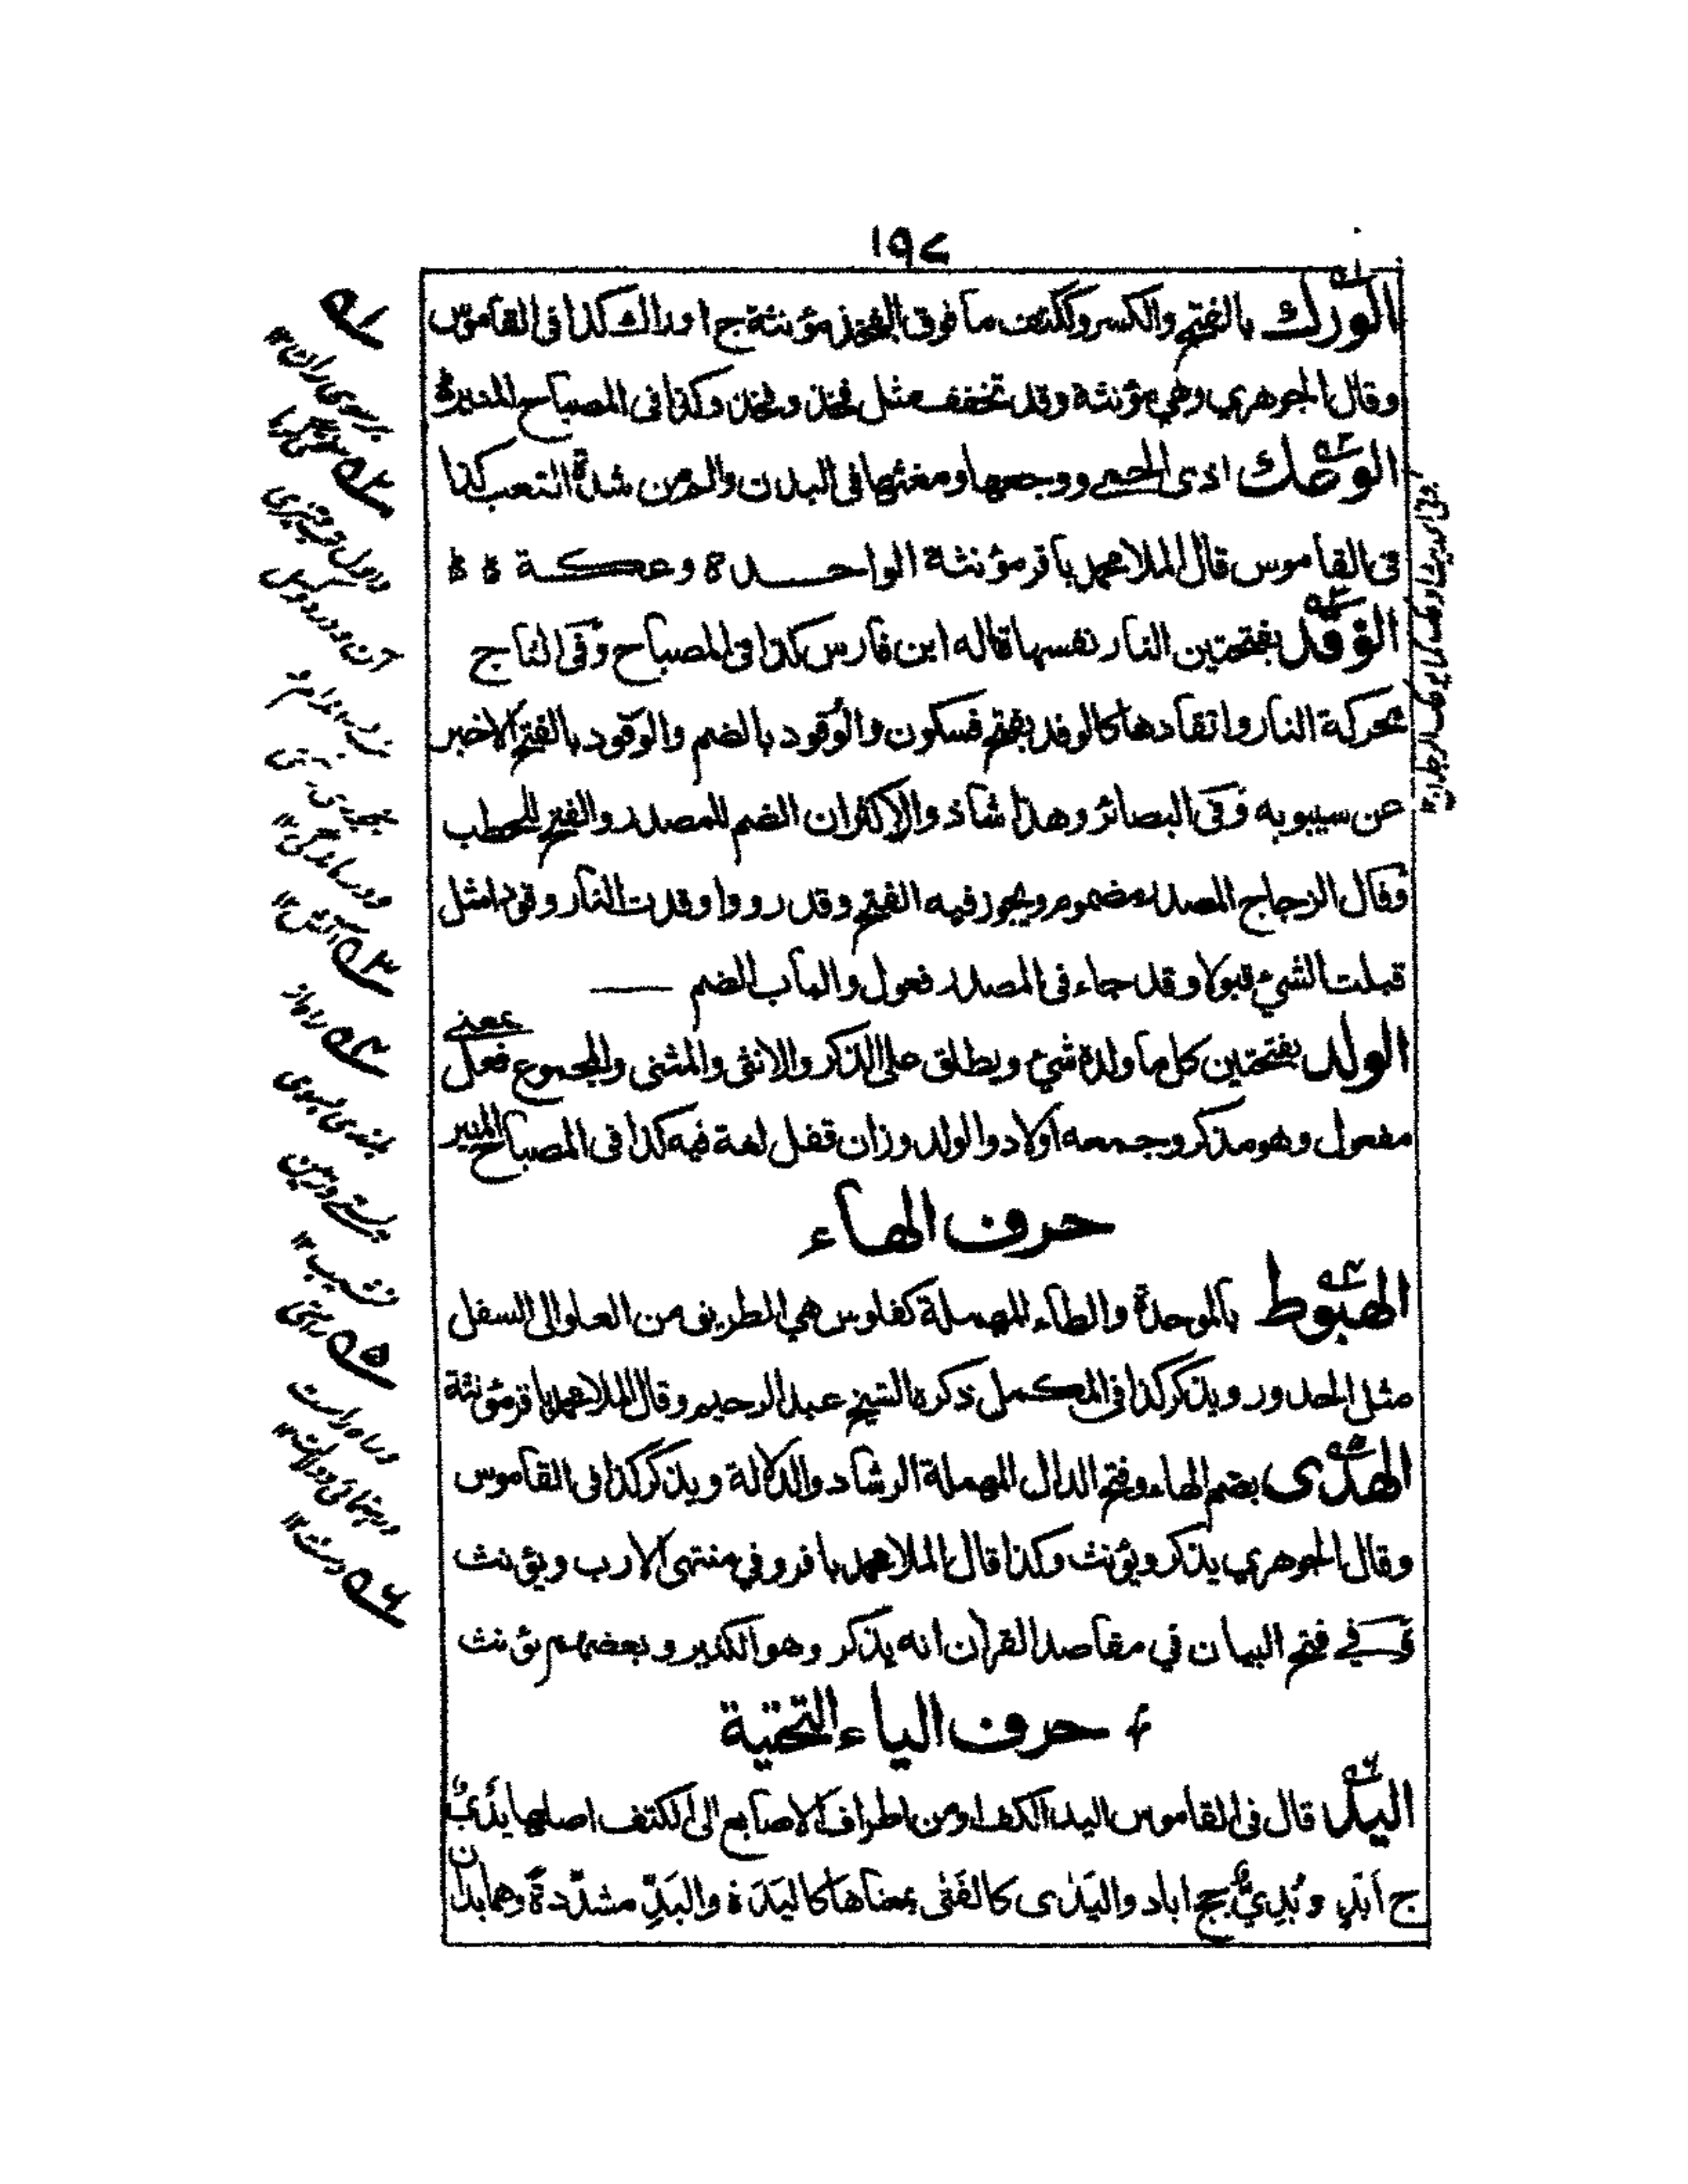 ١٩٧
الورك بالفتح والكسر وككتف ما فوق الفخذ مؤنثة ج اوراك كذا فى القاموس
وقال الجوهري وهي مؤنثة وقد تخفف مثل فخذ وفخذ وكذا فى المصباح المنير
الوعك اذى الحمى ووجعها ومغثها فى البدن والم من شدة التعب كذا
فى القاموس قال الملا محمد باقر مؤنثة الواحدة وعكة
الوقد بفتحتين النار نفسها قاله ابن فارس كذا فى المصباح وفى التاج
محركة النار واتقادها كالوقد بفتح فسكون والوُقود بالضم والوَقود بالفتح الاخير
عن سيبويه وفى البصائر وهذا شاذ والاكثر ان الضم للمصدر والفتح للحطب
وقال الزجاج المصدر مضموم ويجوز فيه الفتح وقد رووا وقدت النار وقودا مثل
قبلت الشيء قبولا وقد جاء فى المصدر فعول والباب الضم
الولد بفتحتين كل ما ولده شيء ويطلق على الذكر والانثى والمثنى والمجموع فعل بمعنے
مفعول وهو مذكر وجمعه اولاد والولد وزان قفل لغة فيه كذا فى المصباح المنير
حرف الهاء
الهبوط بالموحدة والطاء المهملة كفلوس هي الطريق من العلو الى السفل
مثل الحدور ويذكر كذا فى المكمل ذكره الشيخ عبد الرحيم وقال الملا محمد باقر مؤنثة
الهدى بضم الهاء وفتح الدال المهملة الرشاد والدلالة ويذكر كذا فى القاموس
وقال الجوهري يذكر ويؤنث وكذا قال الملا محمد باقر وفي منتهى الارب ويؤنث
وفے فتح البيان في مقاصد القرآن انه يذكر وهو الكثير وبعضهم يؤنث
حرف الياء التحتية
اليد قال فى القاموس اليد الكف او من اطراف الاصابع الى الكتف اصلها يَدْيٌ
ج اَيْدٍ ويُدِيٌّ جج اياد واليَدَى كالفَتَى بمعناها كاليَدَة واليَدِّ مشدّدة وهما يدان
۱
۲
۳
راه از
۴
بلندى بسوى
پستے و زمين
نشيب ۱۲
۵
راستى
و راه راست
۶
دست ۱۲